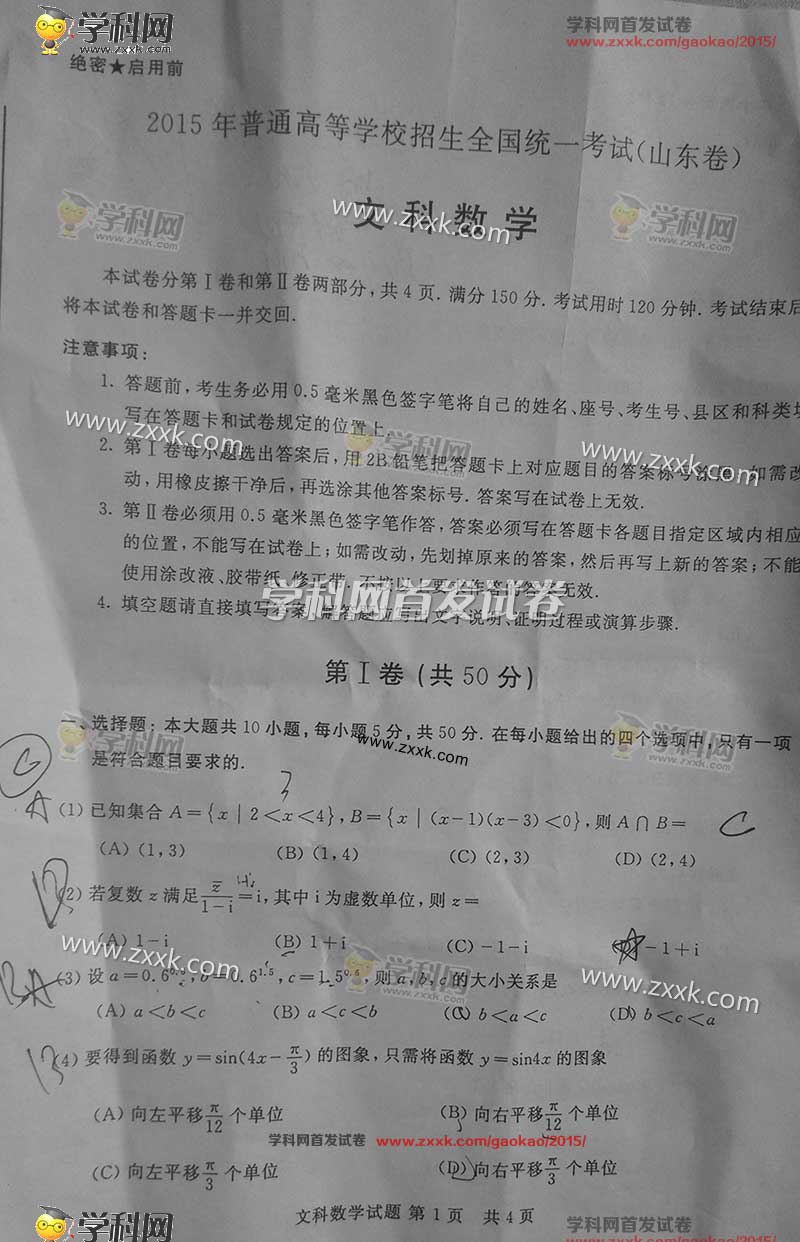 学科网
www.zxxk.com
学科网首发试卷
www.zxxk.com/gaokao/2015/
绝密★启用前
2015年普通高等学校招生全国统一考试(山东卷)
学科网
www.zxxk.com
www.zxxk.com
学科网
www.zxxk.com
文科数学
本试卷分第Ⅰ卷和第Ⅱ卷两部分,共4页. 满分150分. 考试用时120分钟. 考试结束后
将本试卷和答题卡一并交回.
注意事项:
1. 答题前,考生务必用0.5毫米黑色签字笔将自己的姓名、座号、考生号、县区和科类填
写在答题卡和试卷规定的位置上.
www.zxxk.com
学科网
www.zxxk.com
2. 第Ⅰ卷每小题选出答案后,用2B铅笔把答题卡上对应题目的答案标号涂黑. 如需改
动,用橡皮擦干净后,再选涂其他答案标号. 答案写在试卷上无效.
3. 第Ⅱ卷必须用0.5毫米黑色签字笔作答,答案必须写在答题卡各题目指定区域内相应
的位置,不能写在试卷上;如需改动,先划掉原来的答案,然后再写上新的答案;不能
使用涂改液、胶带纸、修正带. 不按以上要求作答的答案无效.
学科网首发试卷
4. 填空题请直接填写答案,解答题应写出文字说明、证明过程或演算步骤.
第Ⅰ卷(共50分)
一、选择题:本大题共10小题,每小题5分,共50分. 在每小题给出的四个选项中,只有一项
是符合题目要求的.
学科网
www.zxxk.com
www.zxxk.com
学科网
www.zxxk.com
A (1)已知集合 A={x | 2<x<4},B={x | (x-1)(x-3)<0},则 A∩B= C
(A) (1,3) (B) (1,4) (C) (2,3) (D) (2,4)
(2)若复数 z 满足 z̄/(1-i)=i,其中 i 为虚数单位,则 z=
(A) 1-i (B) 1+i (C) -1-i -1+i
www.zxxk.com
学科网
www.zxxk.com
www.zxxk.com
(3)设 a=0.6^0.6,b=0.6^1.5,c=1.5^0.6,则 a,b,c 的大小关系是
(A) a<b<c (B) a<c<b (C) b<a<c (D) b<c<a
(4)要得到函数 y=sin(4x-π/3)的图象,只需将函数 y=sin4x 的图象
(A) 向左平移 π/12 个单位 (B) 向右平移 π/12 个单位
学科网首发试卷 www.zxxk.com/gaokao/2015/
(C) 向左平移 π/3 个单位 (D) 向右平移 π/3 个单位
文科数学试题 第1页 共4页
学科网
www.zxxk.com
学科网首发试卷
www.zxxk.com/gaokao/2015/